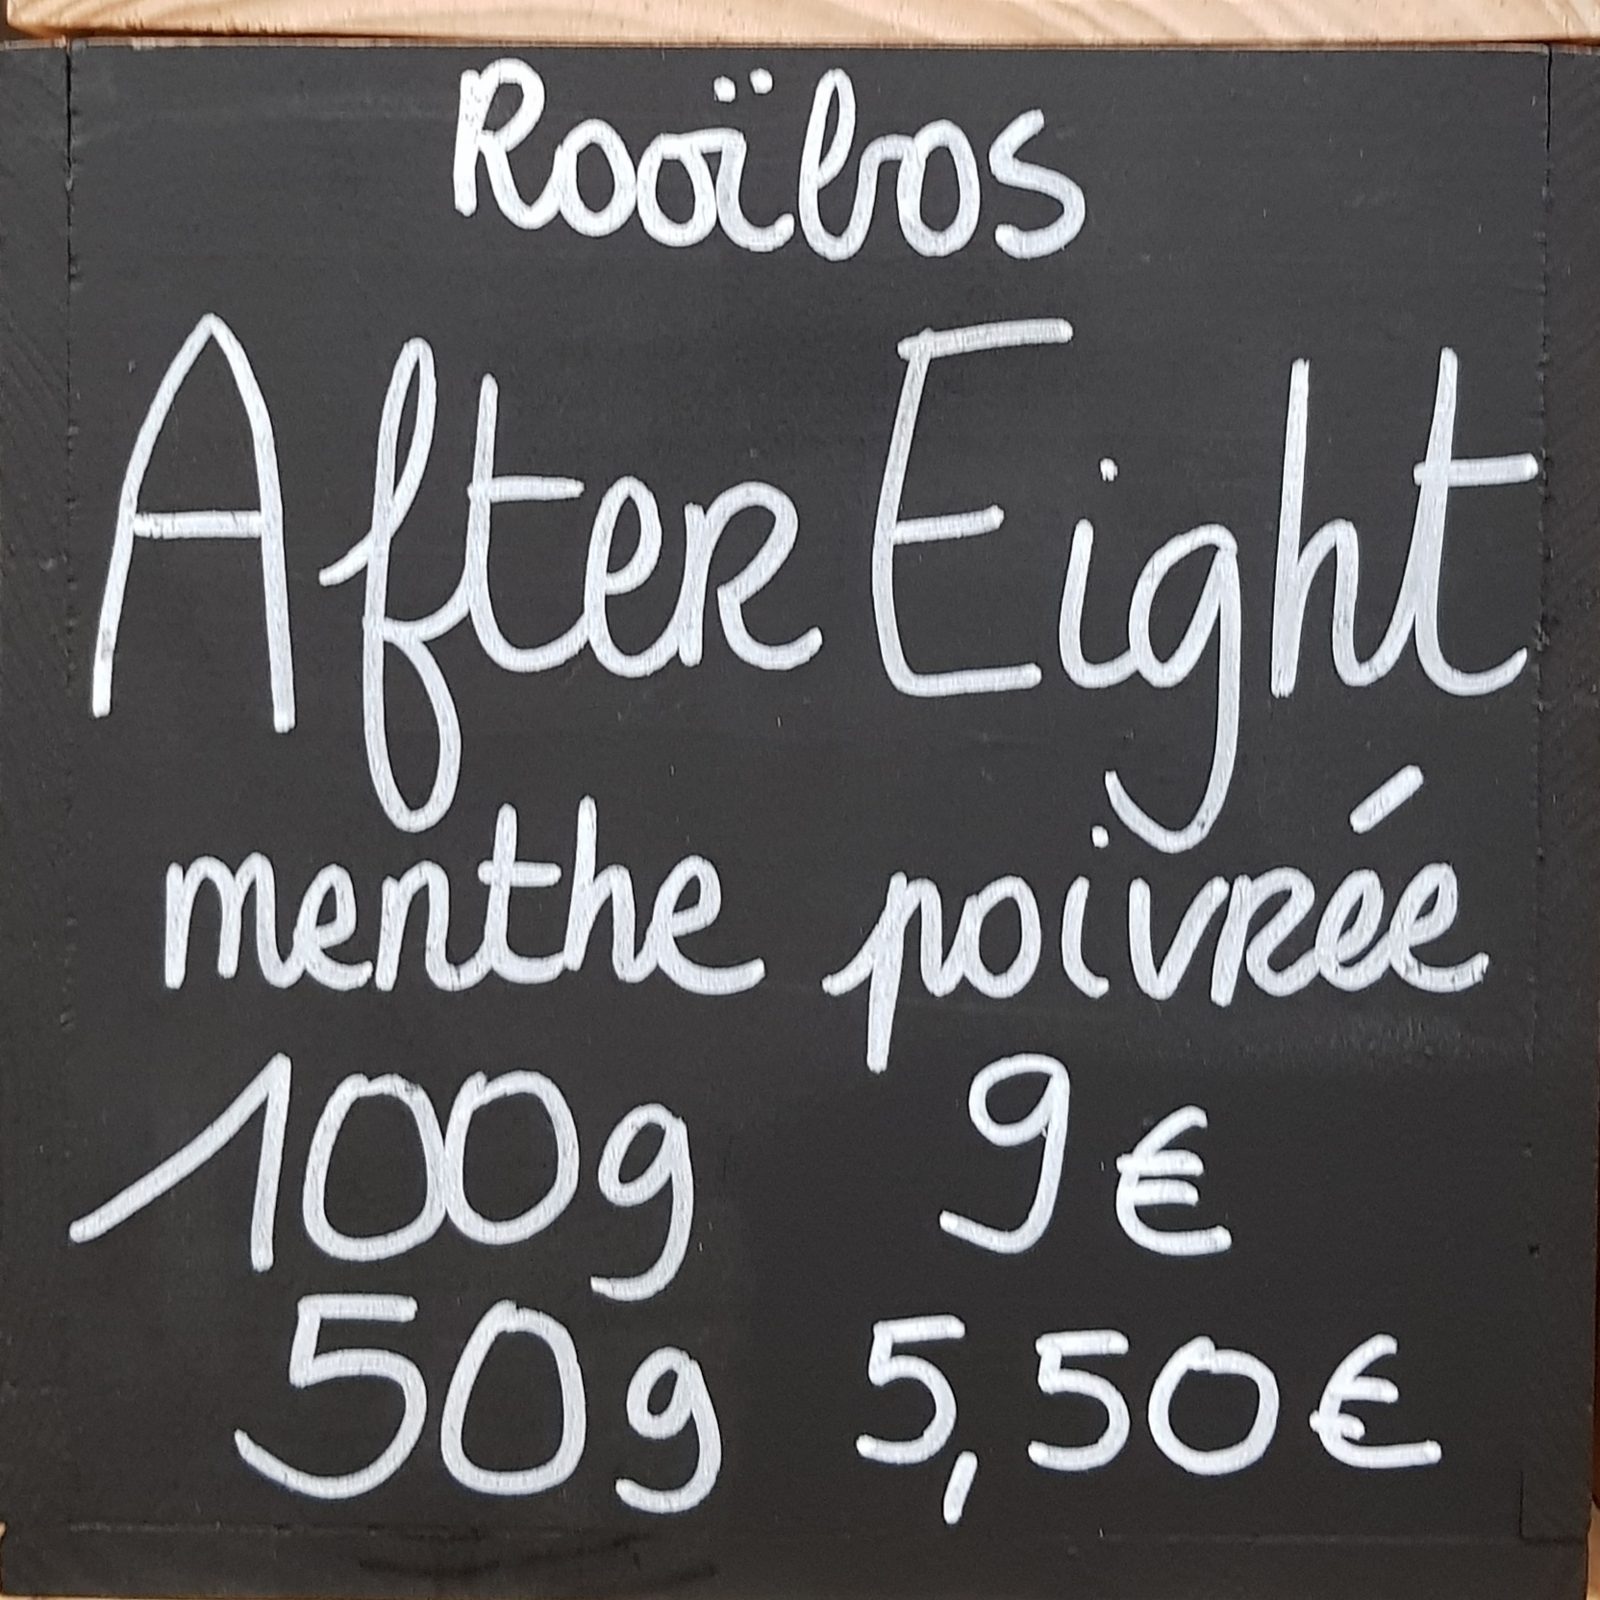 Rooïbos
After Eight
menthe poivrée
100g 9€
50g 5,50€